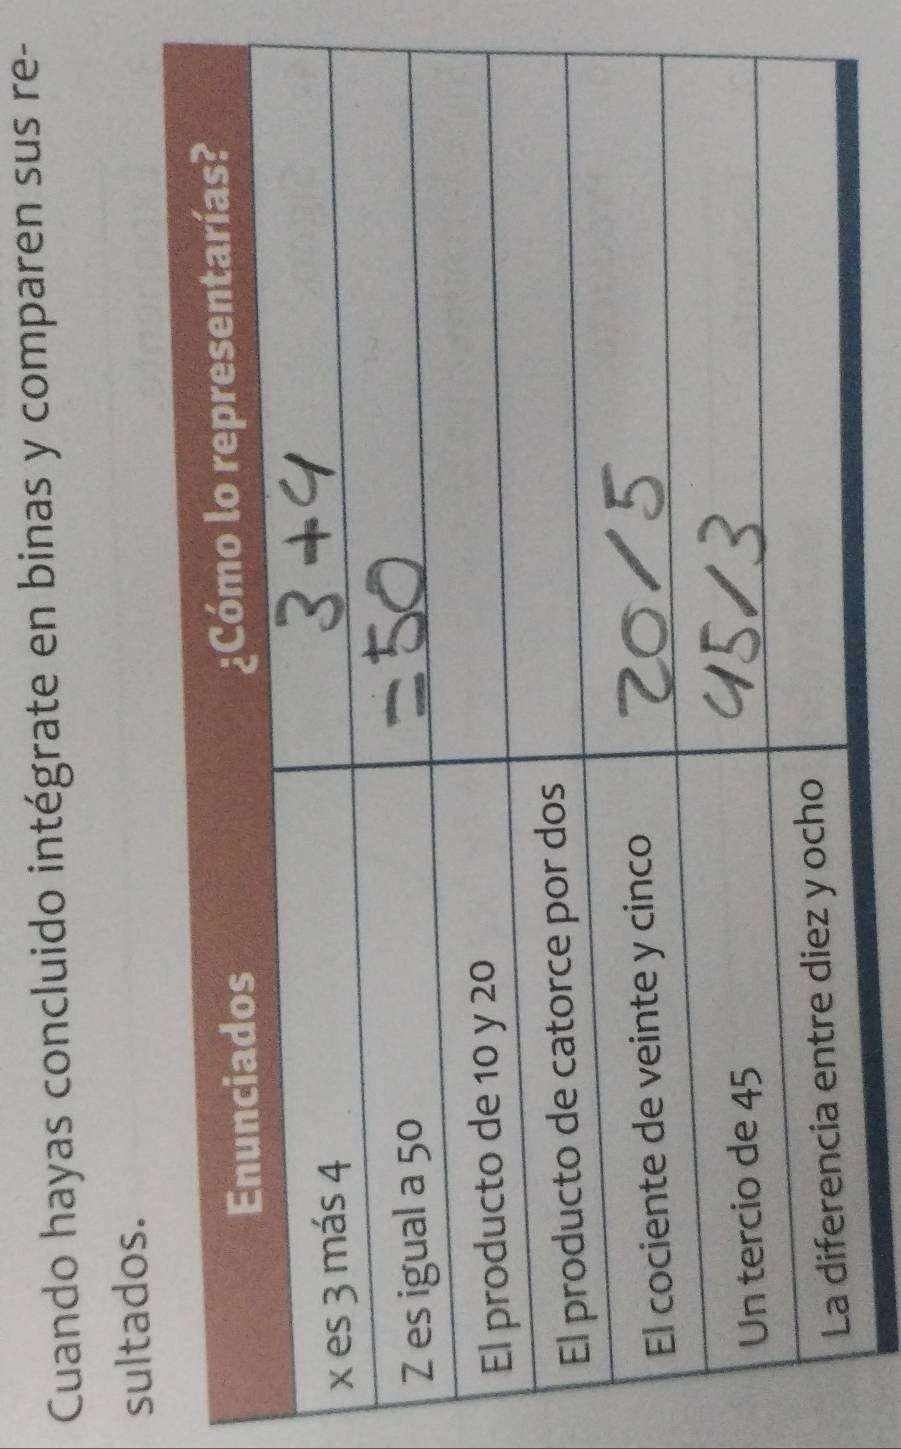 Cuando hayas concluido intégrate en binas y comparen sus re-
sultados.
Enunciados ¿Cómo lo representarías?
x es 3 más 4 3+4
Z es igual a 50 =50
El producto de 10 y 20
El producto de catorce por dos
El cociente de veinte y cinco 20/5
Un tercio de 45 45/3
La diferencia entre diez y ocho